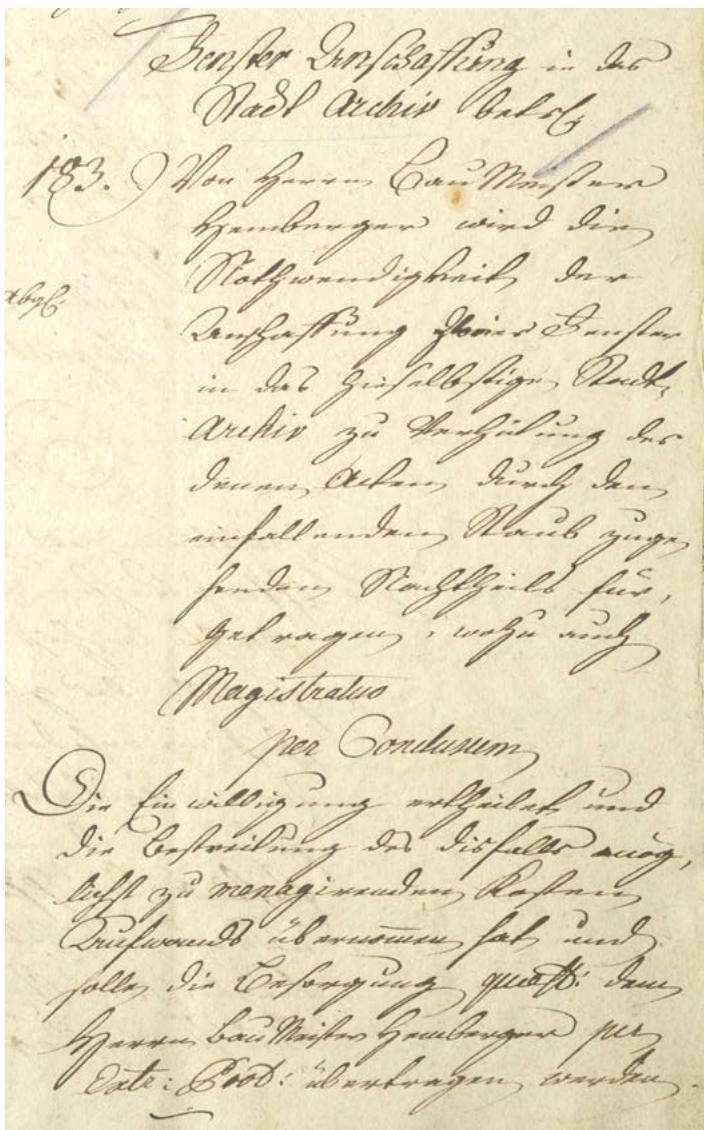 Fenster Anschaffung in das
Stadt Archiv betr.
183.) Von Herrn BauMeister
Hemberger wird die
Nothwendigkeit der
Anschaffung zweier Fenster
in das hieselbstige Stadt-
Archiv zu Verhütung des
denen Acten durch den
einfallenden Staub zuge
henden Nachtheils für,
getragen, wozu auch
Magistratus
per Conclusum
Die Einwilligung ertheilet und
die Bestreitung des disfalls mög,
lichst zu menagirenden Kosten
Aufwands übernommen hat und
solle die Besorgung dem
Herrn BauMeister Hemberger per
Extr: Prot: übertragen werden.